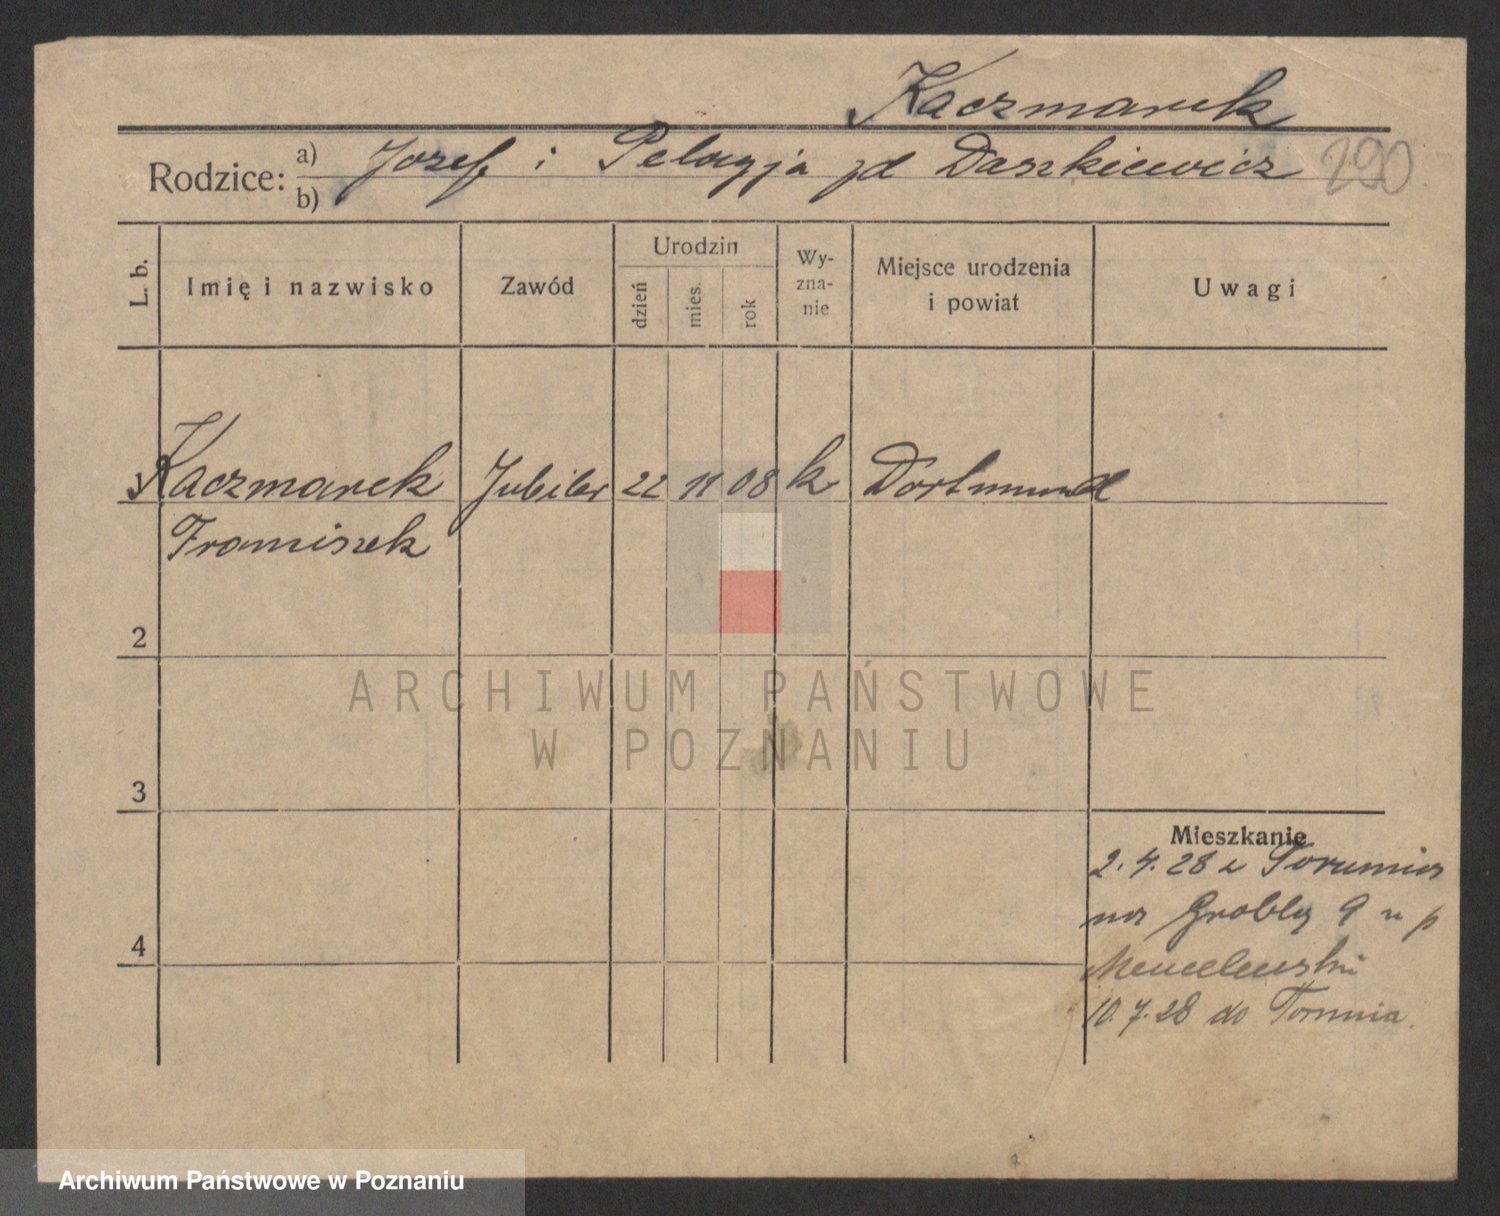 Kaczmarek
Rodzice: a) Jozef i Pelagja zd Daszkiewicz 290
b)
L. b.
Imię i nazwisko
Zawód
Urodzin
dzień
mies.
rok
Wy-
zna-
nie
Miejsce urodzenia
i powiat
Uwagi
1 Kaczmarek Jubiler 22 11 08 k Dortmund
Franciszek
2
ARCHIWUM PAŃSTWOWE
W POZNANIU
3
Mieszkanie
2.4.28 z Torunia
na Grobly 9 u p
4
10.7.28 do Torunia
Archiwum Państwowe w Poznaniu